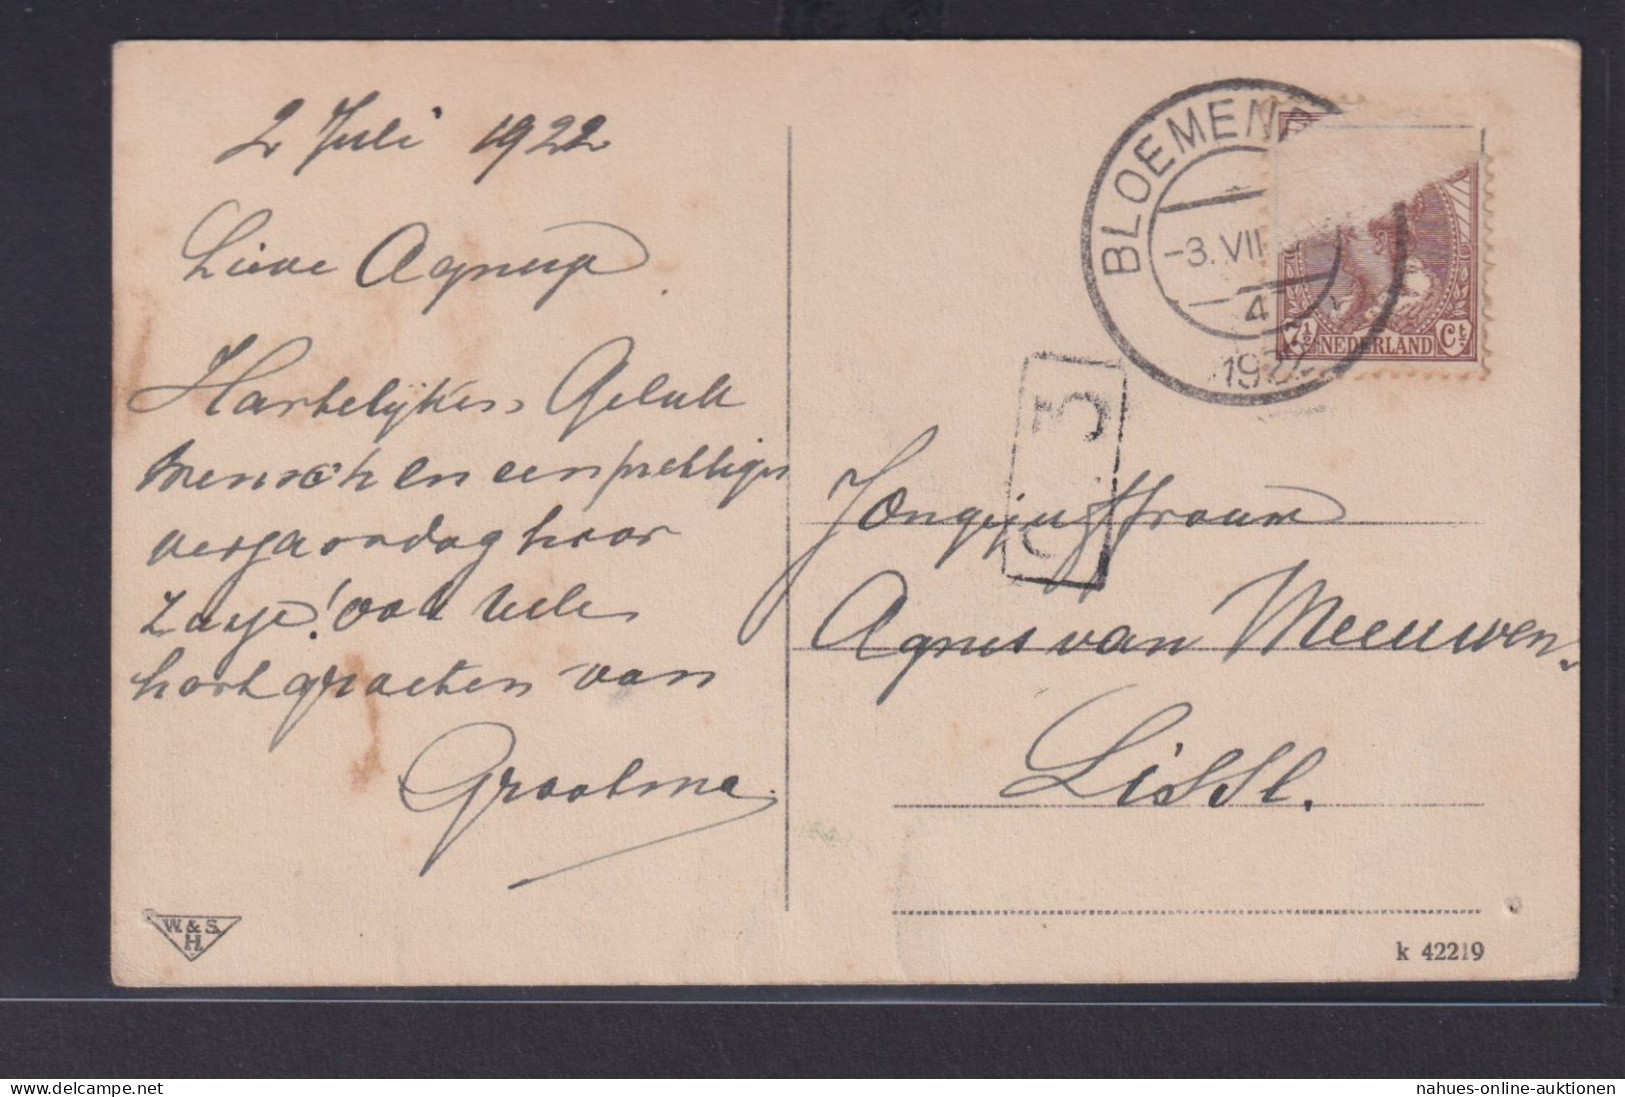 2 Juli 1922
Lieve Agnesje
Hartelijken Geluk
wensch en een prettigen
verjaardag hoor
zusje! ook vele
hart groeten van
Grootma.
BLOEMEN
-3.VII
4
192
7½ NEDERLAND Ct
3
Jongejuffrouw
Agnes van Meeuwen.
Lisse.
W. & S.
H.
k 42219
nahues-online-auktionen